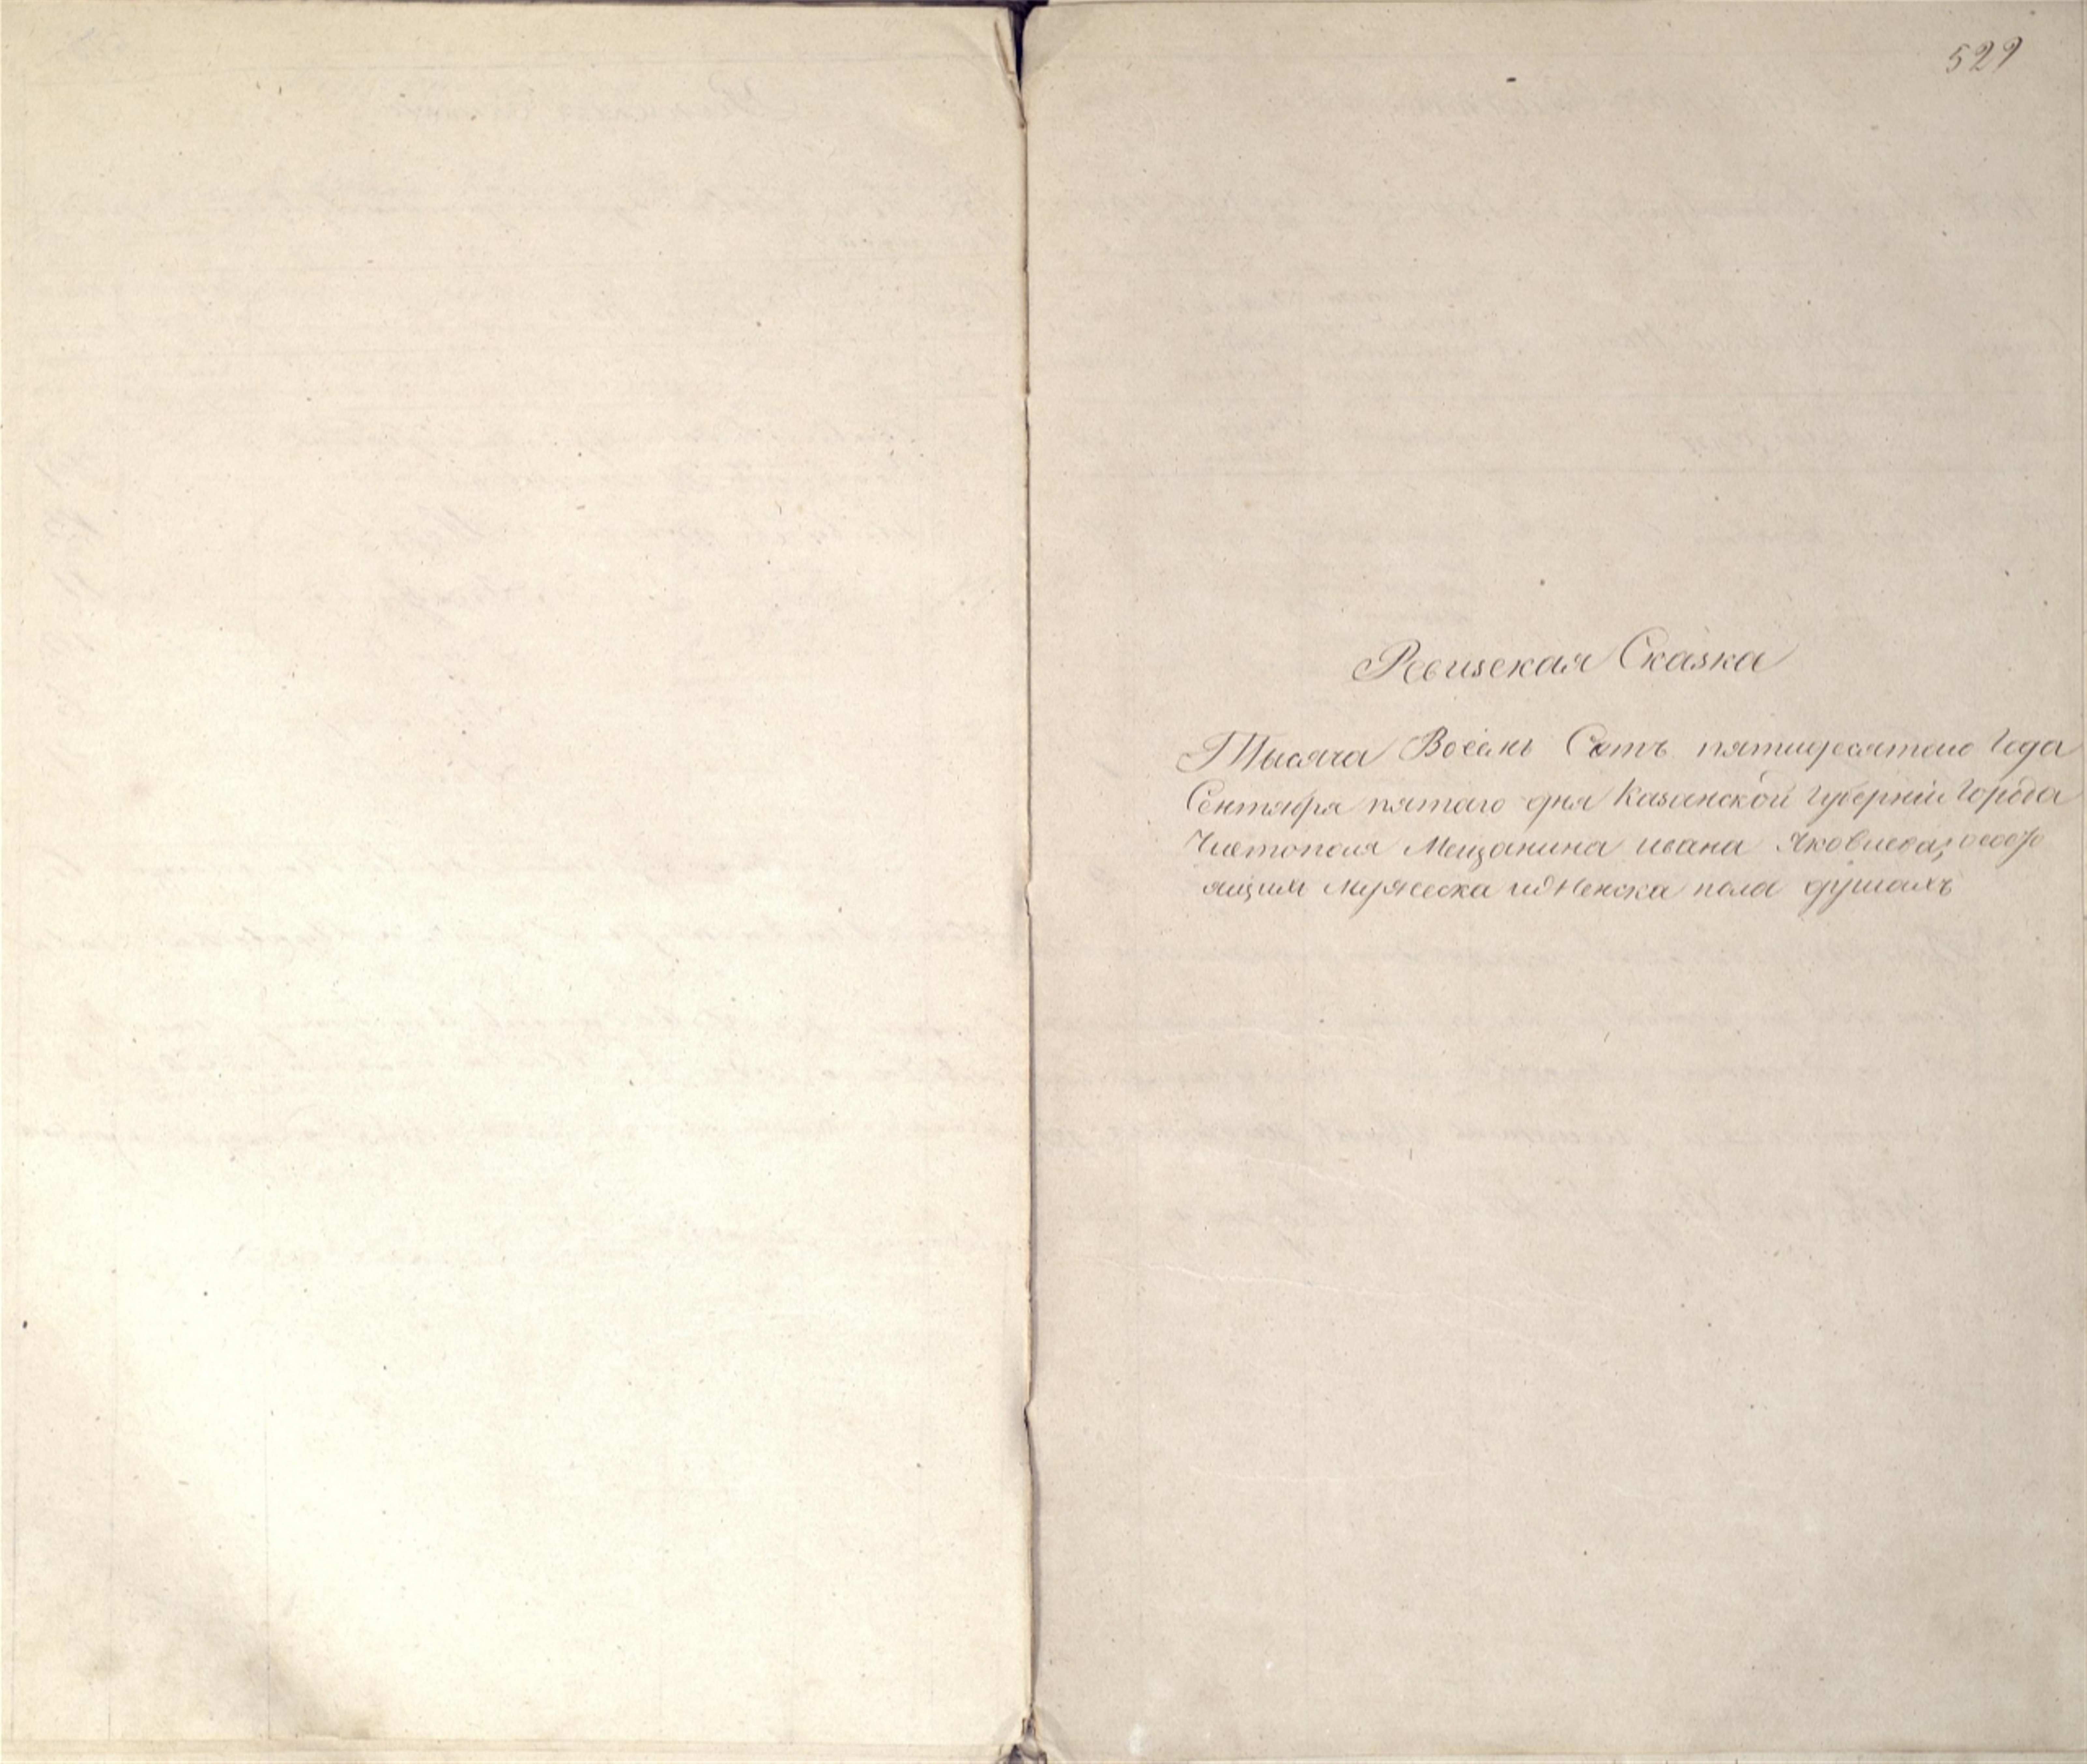 529
Ревизская Сказка
Тысяча Восемь Сотъ пятидесятого Года
Сентября пятаго дня Казанской Губерніи Города
Чистополя Мещанина ивана Яковлева, осостро
ящим мужеска иженска пола душахъ